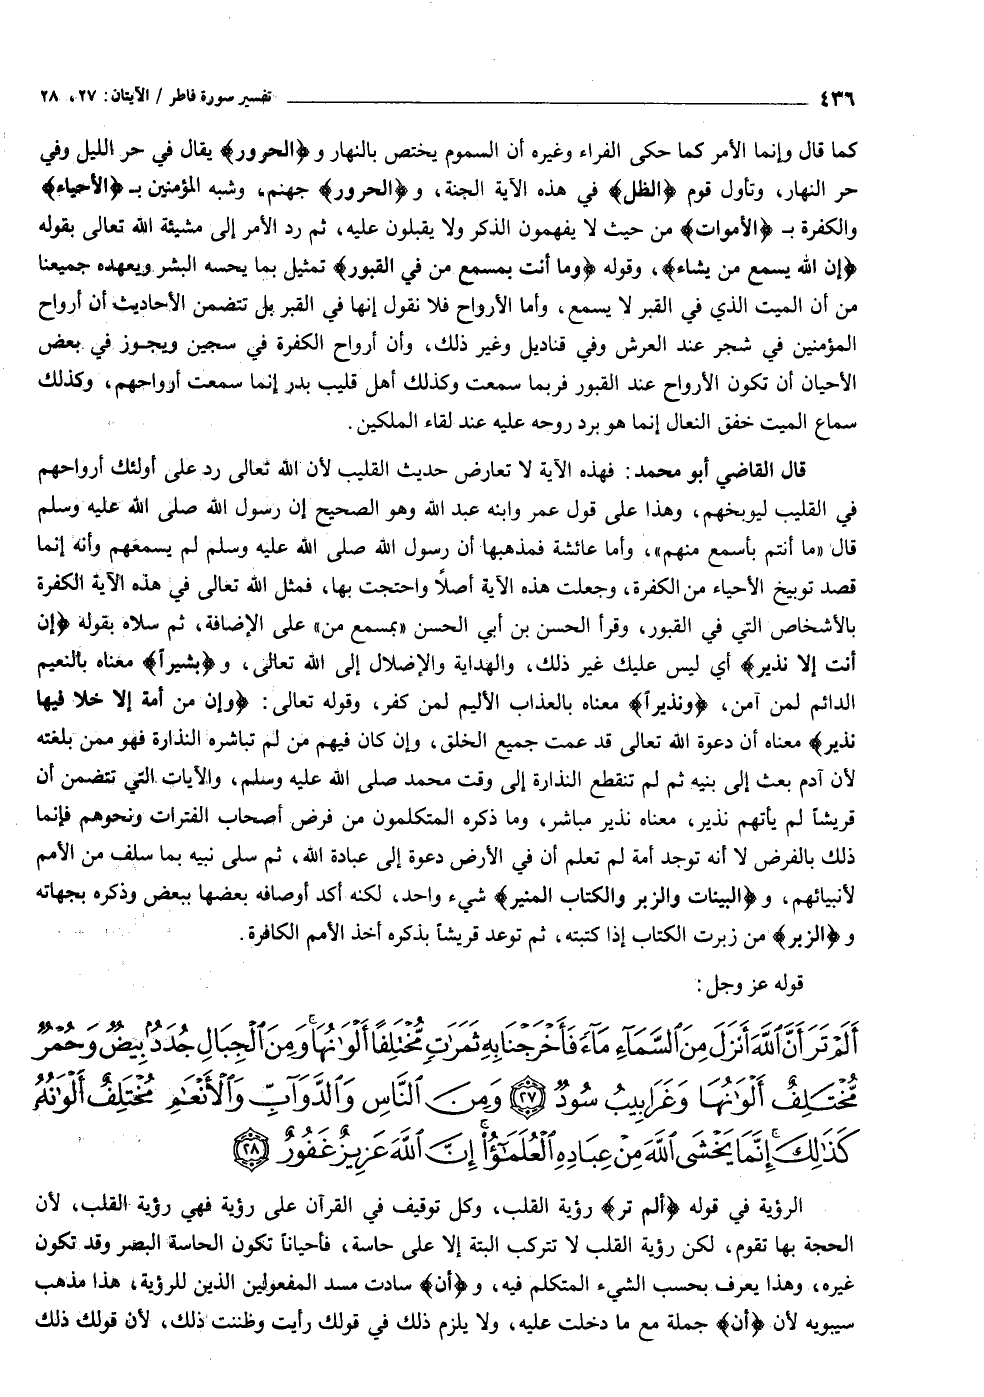 ٤٣٦ تفسير سورة فاطر / الآيتان: ٢٧، ٢٨
كما قال وإنما الأمر كما حكى الفراء وغيره أن السموم يختص بالنهار و ﴿الحرور﴾ يقال في حر الليل وفي
حر النهار، وتأول قوم ﴿الظل﴾ في هذه الآية الجنة، و ﴿الحرور﴾ جهنم، وشبه المؤمنين بـ ﴿الأحياء﴾
والكفرة بـ ﴿الأموات﴾ من حيث لا يفهمون الذكر ولا يقبلون عليه، ثم رد الأمر إلى مشيئة الله تعالى بقوله
﴿إن الله يسمع من يشاء﴾، وقوله ﴿وما أنت بمسمع من في القبور﴾ تمثيل بما يحسه البشر ويعهده جميعنا
من أن الميت الذي في القبر لا يسمع، وأما الأرواح فلا نقول إنها في القبر بل تتضمن الأحاديث أن أرواح
المؤمنين في شجر عند العرش وفي قناديل وغير ذلك، وأن أرواح الكفرة في سجين ويجوز في بعض
الأحيان أن تكون الأرواح عند القبور فربما سمعت وكذلك أهل قليب بدر إنما سمعت أرواحهم، وكذلك
سماع الميت خفق النعال إنما هو برد روحه عليه عند لقاء الملكين.
قال القاضي أبو محمد: فهذه الآية لا تعارض حديث القليب لأن الله تعالى رد على أولئك أرواحهم
في القليب ليوبخهم، وهذا على قول عمر وابنه عبد الله وهو الصحيح إن رسول الله صلى الله عليه وسلم
قال «ما أنتم بأسمع منهم»، وأما عائشة فمذهبها أن رسول الله صلى الله عليه وسلم لم يسمعهم وأنه إنما
قصد توبيخ الأحياء من الكفرة، وجعلت هذه الآية أصلاً واحتجت بها، فمثل الله تعالى في هذه الآية الكفرة
بالأشخاص التي في القبور، وقرأ الحسن بن أبي الحسن «بمسمع من» على الإضافة، ثم سلاه بقوله ﴿إن
أنت إلا نذير﴾ أي ليس عليك غير ذلك، والهداية والإضلال إلى الله تعالى، و ﴿بشيراً﴾ معناه بالنعيم
الدائم لمن آمن، ﴿ونذيراً﴾ معناه بالعذاب الأليم لمن كفر، وقوله تعالى: ﴿وإن من أمة إلا خلا فيها
نذير﴾ معناه أن دعوة الله تعالى قد عمت جميع الخلق، وإن كان فيهم من لم تباشره النذارة فهو ممن بلغته
لأن آدم بعث إلى بنيه ثم لم تنقطع النذارة إلى وقت محمد صلى الله عليه وسلم، والآيات التي تتضمن أن
قريشاً لم يأتهم نذير، معناه نذير مباشر، وما ذكره المتكلمون من فرض أصحاب الفترات ونحوهم فإنما
ذلك بالفرض لا أنه توجد أمة لم تعلم أن في الأرض دعوة إلى عبادة الله، ثم سلى نبيه بما سلف من الأمم
لأنبيائهم، و ﴿البينات والزبر والكتاب المنير﴾ شيء واحد، لكنه أكد أوصافه بعضها ببعض وذكره بجهاته
و ﴿الزبر﴾ من زبرت الكتاب إذا كتبته، ثم توعد قريشاً بذكره أخذ الأمم الكافرة.
قوله عز وجل:
أَلَمْ تَرَ أَنَّ ٱللَّهَ أَنزَلَ مِنَ ٱلسَّمَآءِ مَآءً فَأَخْرَجْنَا بِهِۦ ثَمَرَٰتٍ مُّخْتَلِفًا أَلْوَٰنُهَا ۚ وَمِنَ ٱلْجِبَالِ جُدَدٌۢ بِيضٌ وَحُمْرٌ
مُّخْتَلِفٌ أَلْوَٰنُهَا وَغَرَابِيبُ سُودٌ ﴿٢٧﴾ وَمِنَ ٱلنَّاسِ وَٱلدَّوَآبِّ وَٱلْأَنْعَٰمِ مُخْتَلِفٌ أَلْوَٰنُهُۥ
كَذَٰلِكَ ۗ إِنَّمَا يَخْشَى ٱللَّهَ مِنْ عِبَادِهِ ٱلْعُلَمَٰٓؤُا۟ ۗ إِنَّ ٱللَّهَ عَزِيزٌ غَفُورٌ ﴿٢٨﴾
الرؤية في قوله ﴿ألم تر﴾ رؤية القلب، وكل توقيف في القرآن على رؤية فهي رؤية القلب، لأن
الحجة بها تقوم، لكن رؤية القلب لا تتركب البتة إلا على حاسة، فأحياناً تكون الحاسة البصر وقد تكون
غيره، وهذا يعرف بحسب الشيء المتكلم فيه، و ﴿أن﴾ سادت مسد المفعولين الذين للرؤية، هذا مذهب
سيبويه لأن ﴿أن﴾ جملة مع ما دخلت عليه، ولا يلزم ذلك في قولك رأيت وظننت ذلك، لأن قولك ذلك